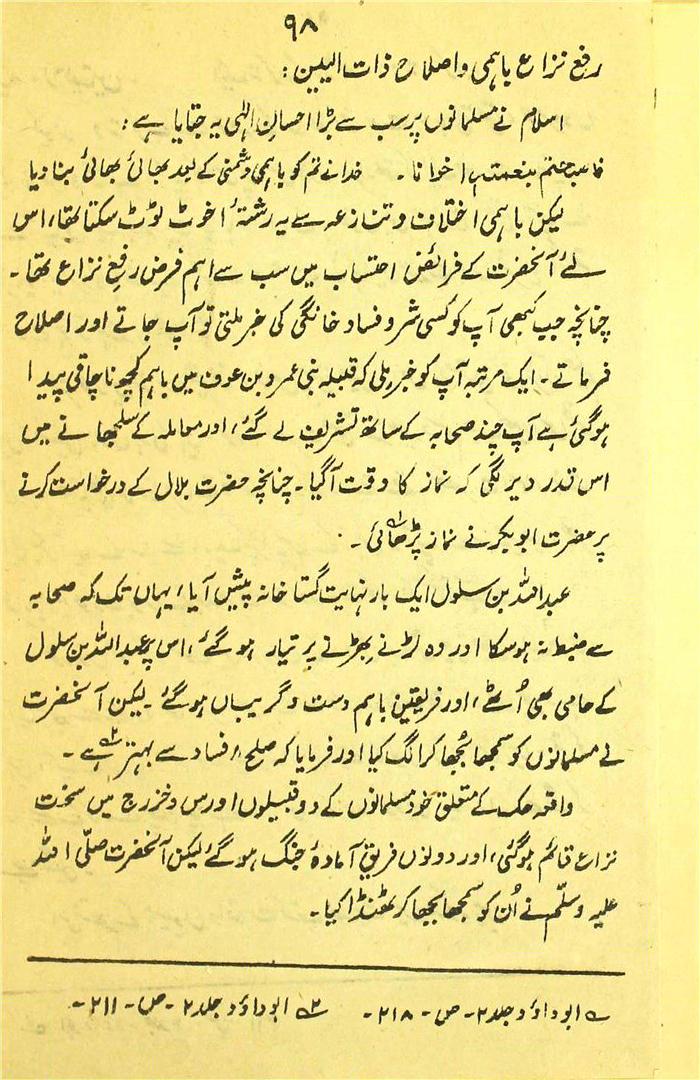 ۹۸
رفع نزاع باہمی و اصلاح ذات البین:
اسلام نے مسلمانوں پر سب سے بڑا احسانِ الٰہی یہ جتایا ہے:
فاصبحتم بنعمتہ اخوانا۔ خدا نے تم کو باہمی دشمنی کے بعد بھائی بھائی بنا دیا
لیکن باہمی اختلاف و تنازعہ سے یہ رشتۂ اخوت ٹوٹ سکتا تھا، اس
لئے آنحضرت کے فرائض احتساب میں سب سے اہم فرض رفع نزاع تھا۔
چنانچہ جب کبھی آپ کو کسی شر و فساد خانگی کی خبر ملتی تو آپ جاتے اور اصلاح
فرماتے۔ ایک مرتبہ آپ کو خبر ملی کہ قبیلہ بنی عمرو بن عوف میں باہم کچھ ناچاقی پیدا
ہوگئی ہے آپ چند صحابہ کے ساتھ تشریف لے گئے، اور معاملہ کے سلجھانے میں
اس قدر دیر لگی کہ نماز کا وقت آگیا۔ چنانچہ حضرت بلال کے درخواست کرنے
پر حضرت ابوبکر نے نماز پڑھائی۔ ۱
عبداللہ بن سلول ایک بار نہایت گستاخانہ پیش آیا، یہاں تک کہ صحابہ
سے ضبط نہ ہوسکا اور وہ لڑنے بھڑنے پر تیار ہوگئے، اس پر عبداللہ بن سلول
کے حامی بھی اُٹھے، اور فریقین باہم دست و گریباں ہوگئے لیکن آنحضرت
نے مسلمانوں کو سمجھا بُجھا کر الگ کیا اور فرمایا کہ صلح، فساد سے بہتر ہے۔ ۲
واقعہ حک کے متعلق خود مسلمانوں کے دو قبیلوں اوس و خزرج میں سخت
نزاع قائم ہوگئی، اور دونوں فریق آمادۂ جنگ ہوگئے لیکن آنحضرت صلّی اللہ
علیہ وسلّم نے اُن کو سمجھا بجھا کر ٹھنڈا کیا۔
۱ ابو داؤد جلد ۲۔ ص۔ ۲۱۸۔ ۲ ابو داؤد جلد ۲۔ ص۔ ۲۱۱۔